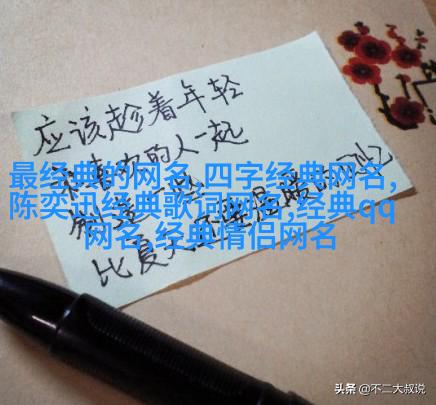 应该趁着年轻
和喜欢的人一起
最经典的网名,四字经典网名,
陈奕迅经典歌词网名,经典qq
网名,经典情侣网名
比夏天还要
头条 @不二大叔说